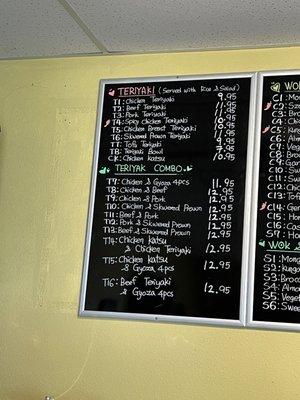 TERIYAKI (Served with Rice & Salad)
T1: Chicken Teriyaki 9.95
T2: Beef Teriyaki 11.95
T3: Pork Teriyaki 11.95
T4: Spicy Chicken Teriyaki 10.95
T5: Chicken Breast Teriyaki 10.95
T6: Skewered Prawn Teriyaki 11.95
T7: Tofu Teriyaki 9.95
T8: Teriyaki Bowl 7.95
CK: Chicken Katsu 10.95
TERIYAK COMBO
T9: Chicken & Gyoza 4pcs 11.95
T8: Chicken & Beef 12.95
T9: Chicken & Pork 12.95
T10: Chicken & Skewered Prawn 12.95
T11: Beef & Pork 12.95
T12: Pork & Skewered Prawn 12.95
T13: Beef & Skewered Prawn 12.95
T14: Chicken Katsu
& Chicken Teriyaki 12.95
T15: Chicken Katsu
& Gyoza 4pcs 12.95
T16: Beef Teriyaki
& Gyoza 4pcs 12.95
WOK
C1: Mong
C2:
C3:
C4:
C5:
C6:
C7:
C8:
C9:
C10:
C11:
C12:
C13:
C14:
C15:
C16:
S7:
WOK &
S1: Mong
S2: Kung
S3: Brocc
S4: Almo
S5: Veget
S6: Swee